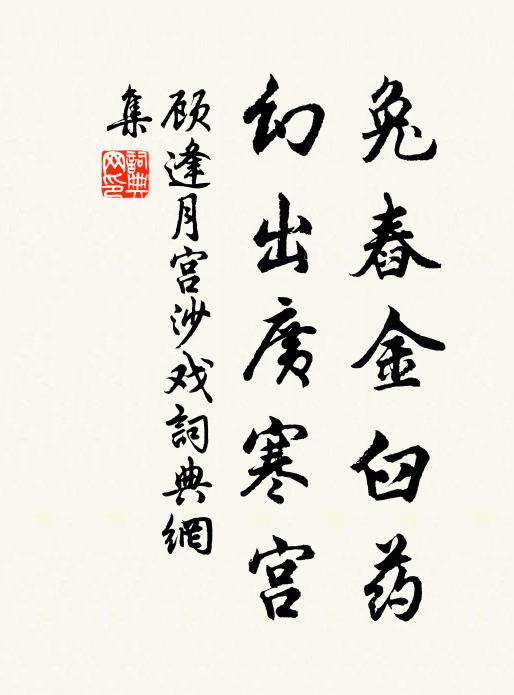 兔舂金臼药
幻出廣寒宫
顾逢月宫沙戏詞典網
集
詞典网印